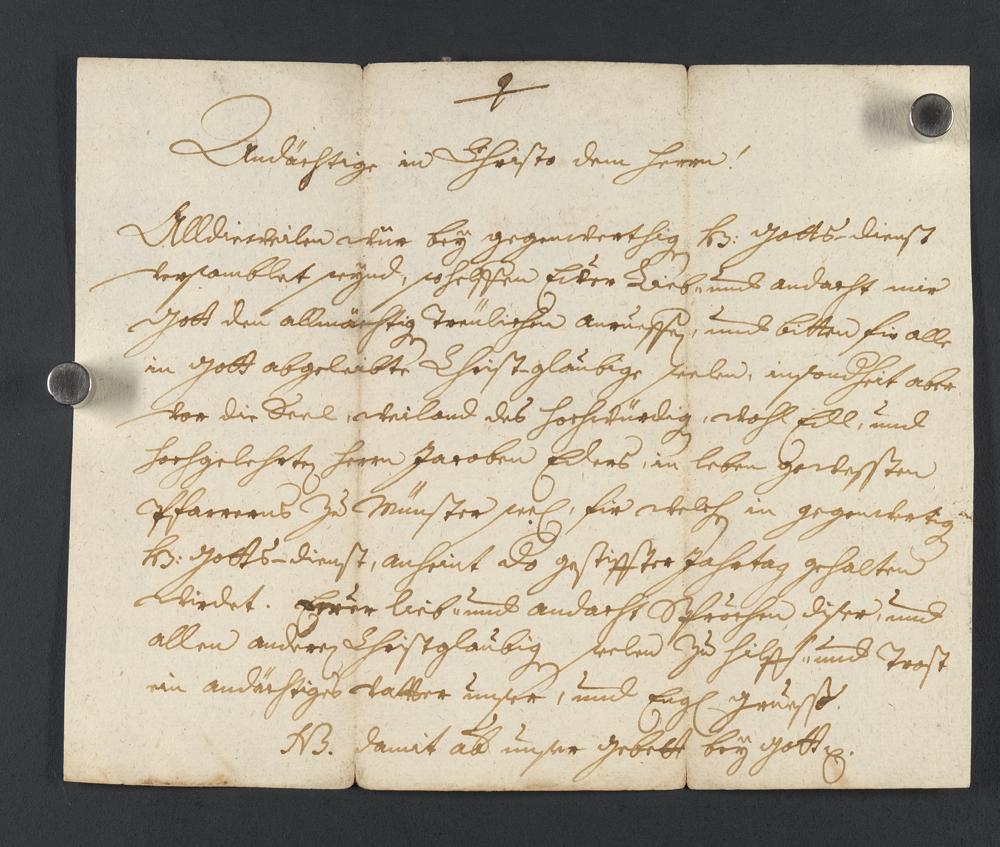 Andächtige in Christo dem Herrn!
Alldieweilen wür bey gegenwerthig H: Gotts-dienst
versamblet seynd, so helffen Eüer Lieb- und andacht mir
Gott den allmächtig Treülichen anrueffen, und bitten für alle
in Gott abgeleibte Christ-glaubige seelen, insondheit aber
vor die Seel weiland des hochwürdig, wohl Edl, und
hochgelehrten Herrn Jacoben Eders, in leben gewessten
Pfarrerns Zu Münster seel, für welch in gegenwertig
H: Gotts-dienst, anheint do gestiffter Jahrtag gehalten
wirdet. Eüer lieb- und andacht Sprechen diser, und
allen anderen Christglaubig seelen Zu hilff- und Trost
ein andächtiges vatter unser, und Engl: gruess.
NB. damit ab unser gebett bey Gott